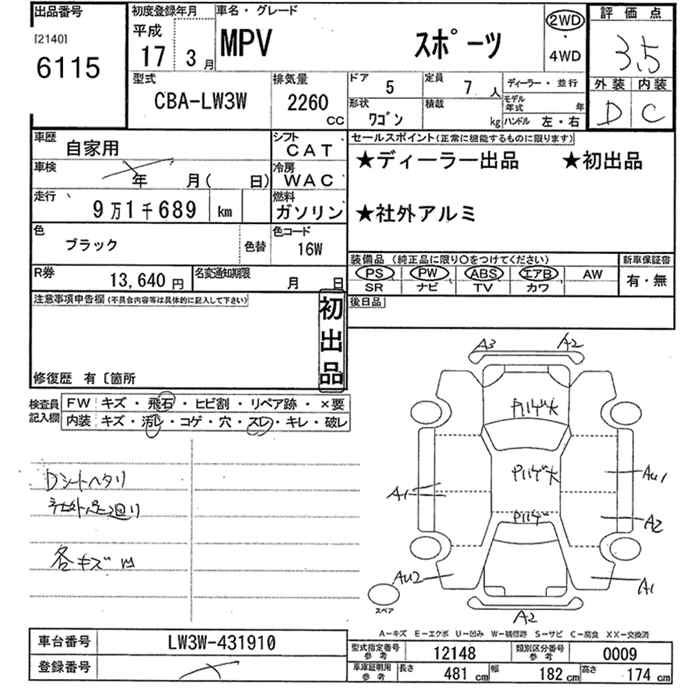 出品番号
[2140]
6115
初度登録年月
平成
17年 3月
車名・グレード
MPV スポーツ
2WD
・
4WD
評価点
3.5
外装 内装
D C
型式
CBA-LW3W
排気量
2260 CC
ドア 5
定員 7人
ディーラー・並行
形状 ワゴン
積載 kg
モデル年式 年
ハンドル 左・右
車歴 自家用
シフト CAT
車検 年 月( 日)
冷房 WAC
走行 9万1千689 km
燃料 ガソリン
色 ブラック
色替
色コード 16W
R券 13,640円
名変通知期限 月 日
セールスポイント(正常に機能するものに限ります)
★ディーラー出品 ★初出品
★社外アルミ
装備品(純正品に限り○をつけてください)
新車保証書
PS PW ABS エアB AW
SR ナビ TV カワ
有・無
後日品
注意事項申告欄(不具合内容等は具体的に記入して下さい)
初出品
修復歴 有〔箇所
検査員記入欄
FW キズ・飛石・ヒビ割・リペア跡・×要
内装 キズ・汚レ・コゲ・穴・スレ・キレ・破レ
Dシートヘタリ
各キズ凹
A3 A2
A1
AU1
A2
AU2
A1
A2
スペア
A-キズ E-エクボ U-凹み W-補修跡 S-サビ C-腐食 XX-交換済
車台番号 LW3W-431910
登録番号
型式指定番号 参考 12148
類別区分番号 参考 0009
車庫証明用 参考 長さ 481 cm 幅 182 cm 高さ 174 cm